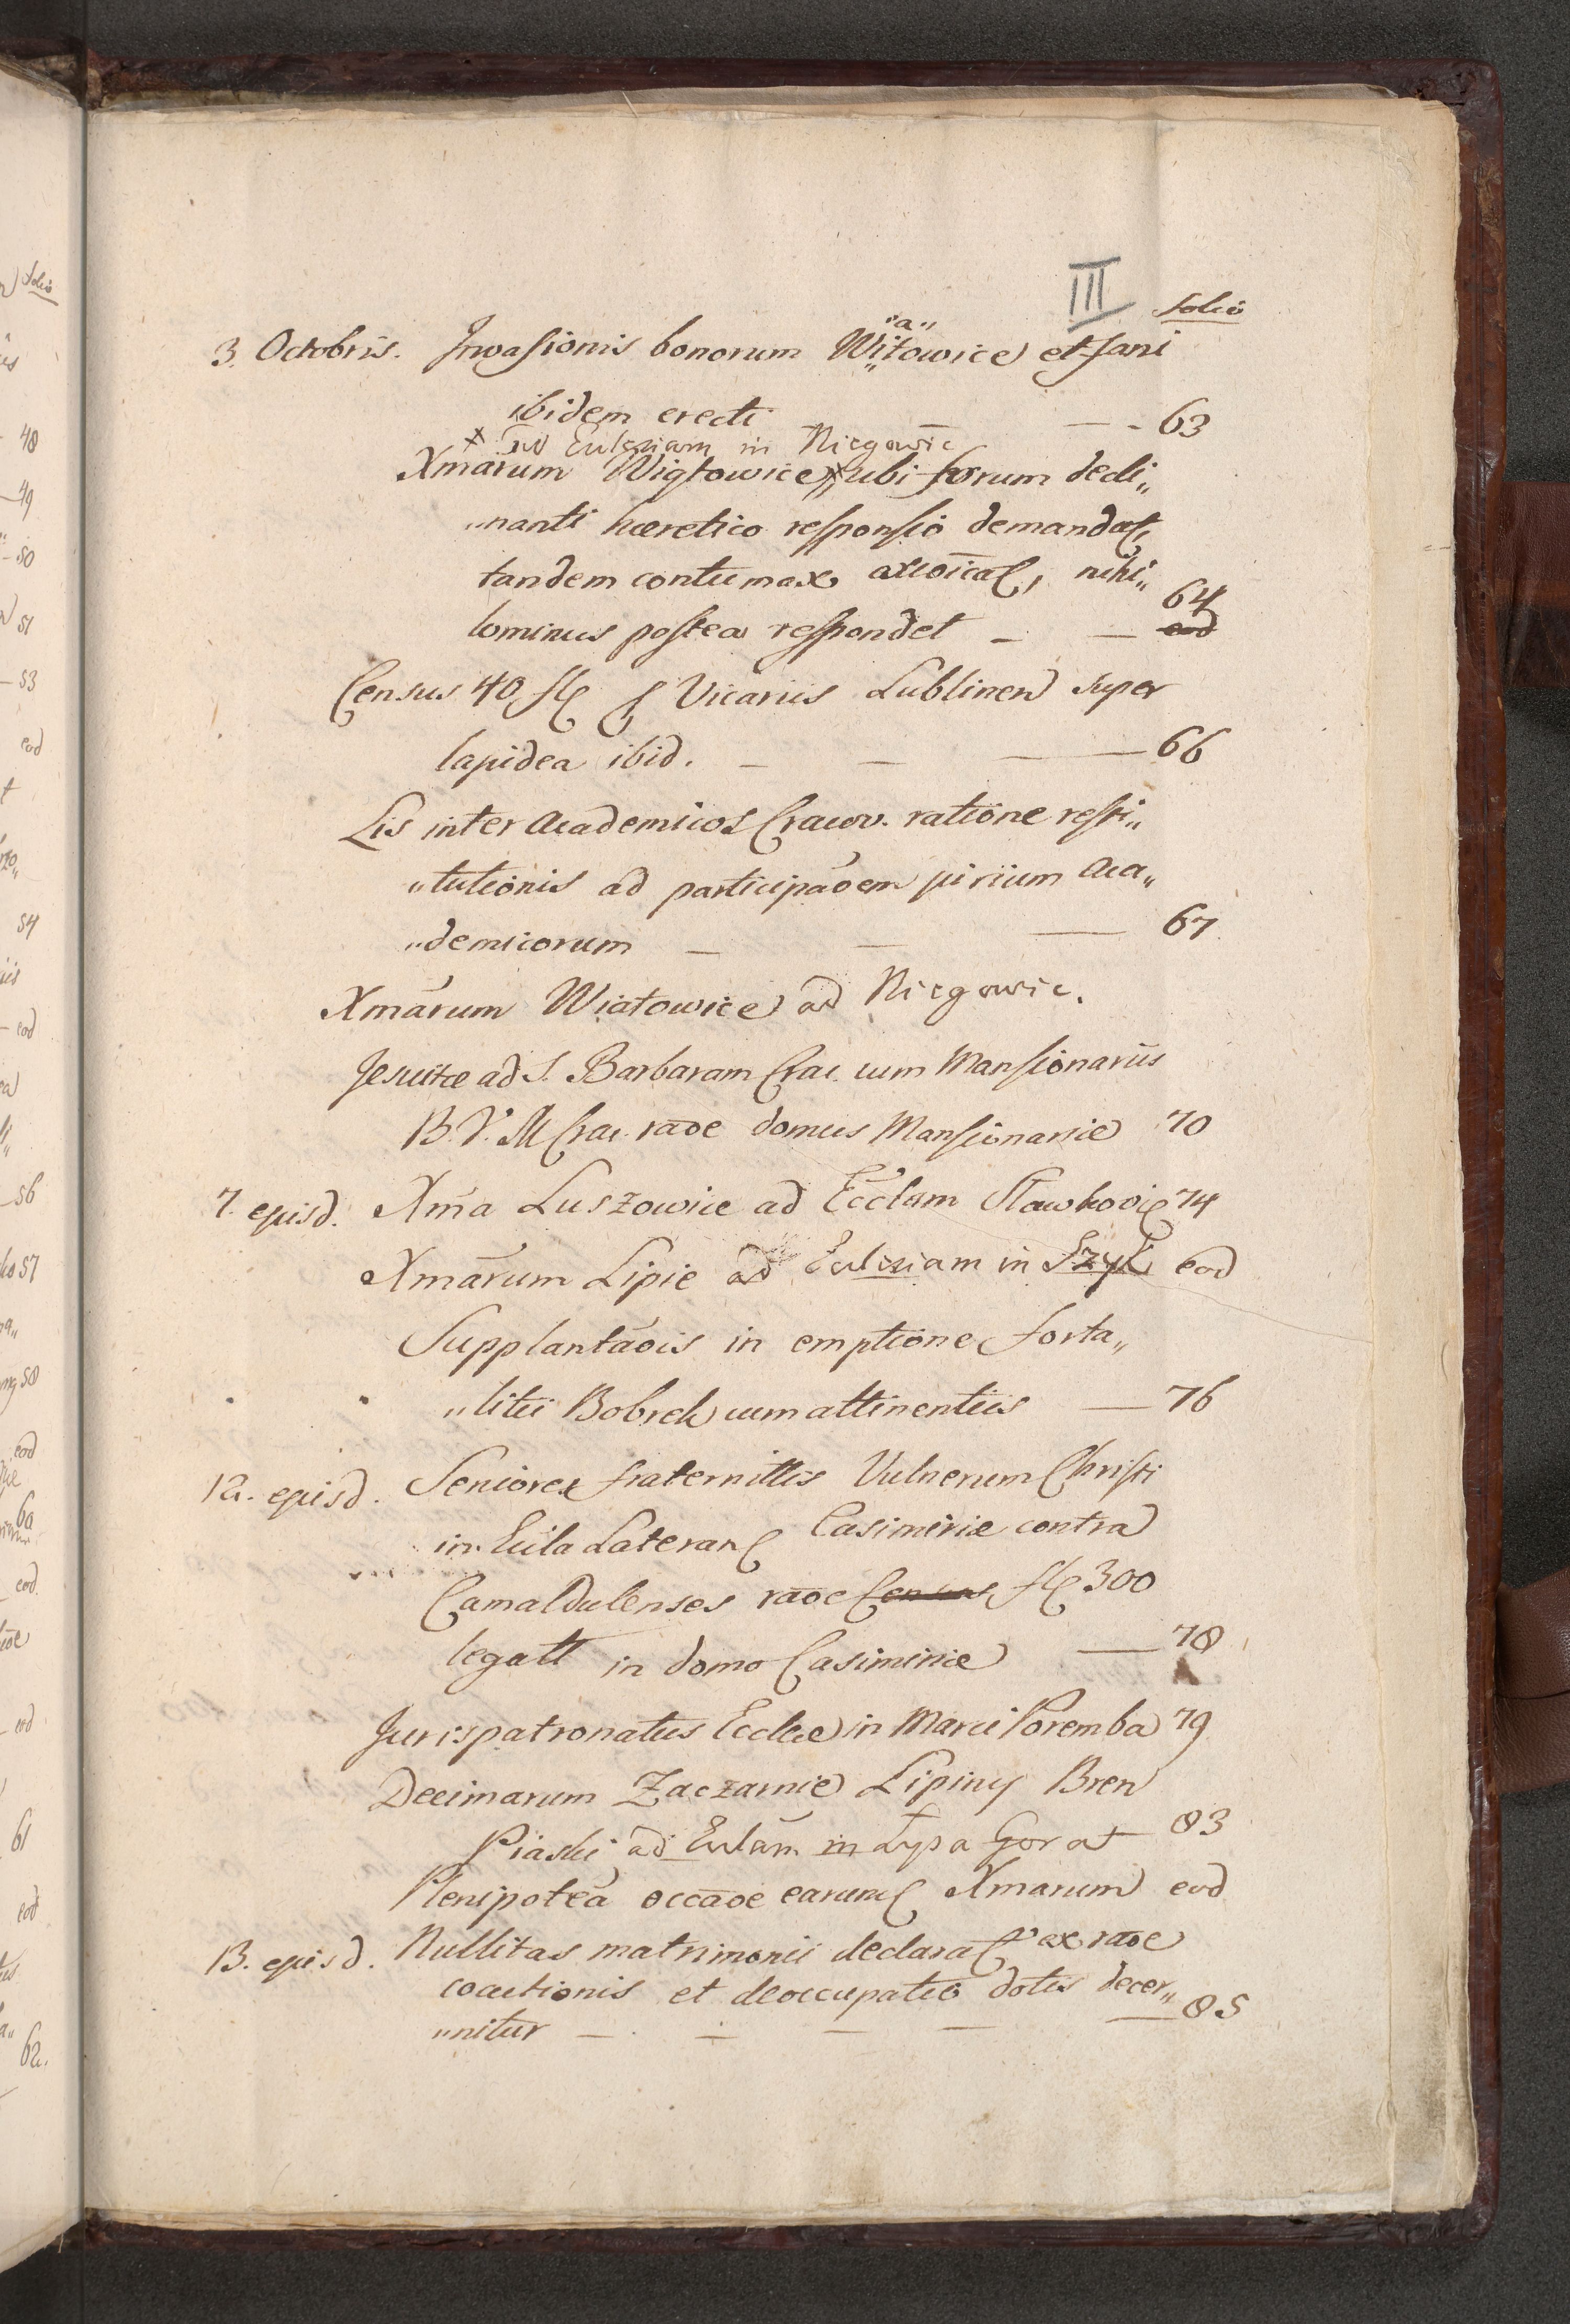 III
folio
3. Octobris. Invasionis bonorum Witowice et fani
"a"
ibidem erecti — - 63
x ad Ecclesiam in Niegowic
Xmarum Wiątowice x ubi forum decli„
„nanti hæretico responsio demandat
tandem contumax nihi„
lominus postea respondet — — 64
eod
Census 40 fl Vicariis Lublinen super
lapidea ibid. — — — 66
Lis inter Academicos Cracov. ratione resti„
„tutionis ad participāoem jurium Aca„
„demicorum — — — 67
Xmarum Wiatowice ad Niegowic.
Jesuitæ ad S. Barbaram Crac. cum Mansionariis
B.V.M Crac. raōe domus Mansionariæ 70
7. ejusd. Xma Luszowice ad Ecclam Sławkovi 74
Xmarum Lipie ad Ecclesiam in Szyk eod
Supplantāois in emptione forta„
„litii Bobrek cum attinentiis — 76
12. ejusd. Seniores fraternittis Vulnerum Christi
in Eccla Lateran Casimiriæ contra
Camaldulenses raōe Census fl 300
legati in domo Casimiriæ — 78
Jurispatronatus Ecclæ in Marci Poremba 79
Decimarum Zaczarnie Lipiny Bren
Piaski ad Ecclam in Lysa Gora + 83
Plenipotēa occāoe earum Xmarum eod
13. ejusd. Nullitas matrimonii declarat ex raōe
coactionis et deoccupatio dotis decer„
„nitur — — — — — 85